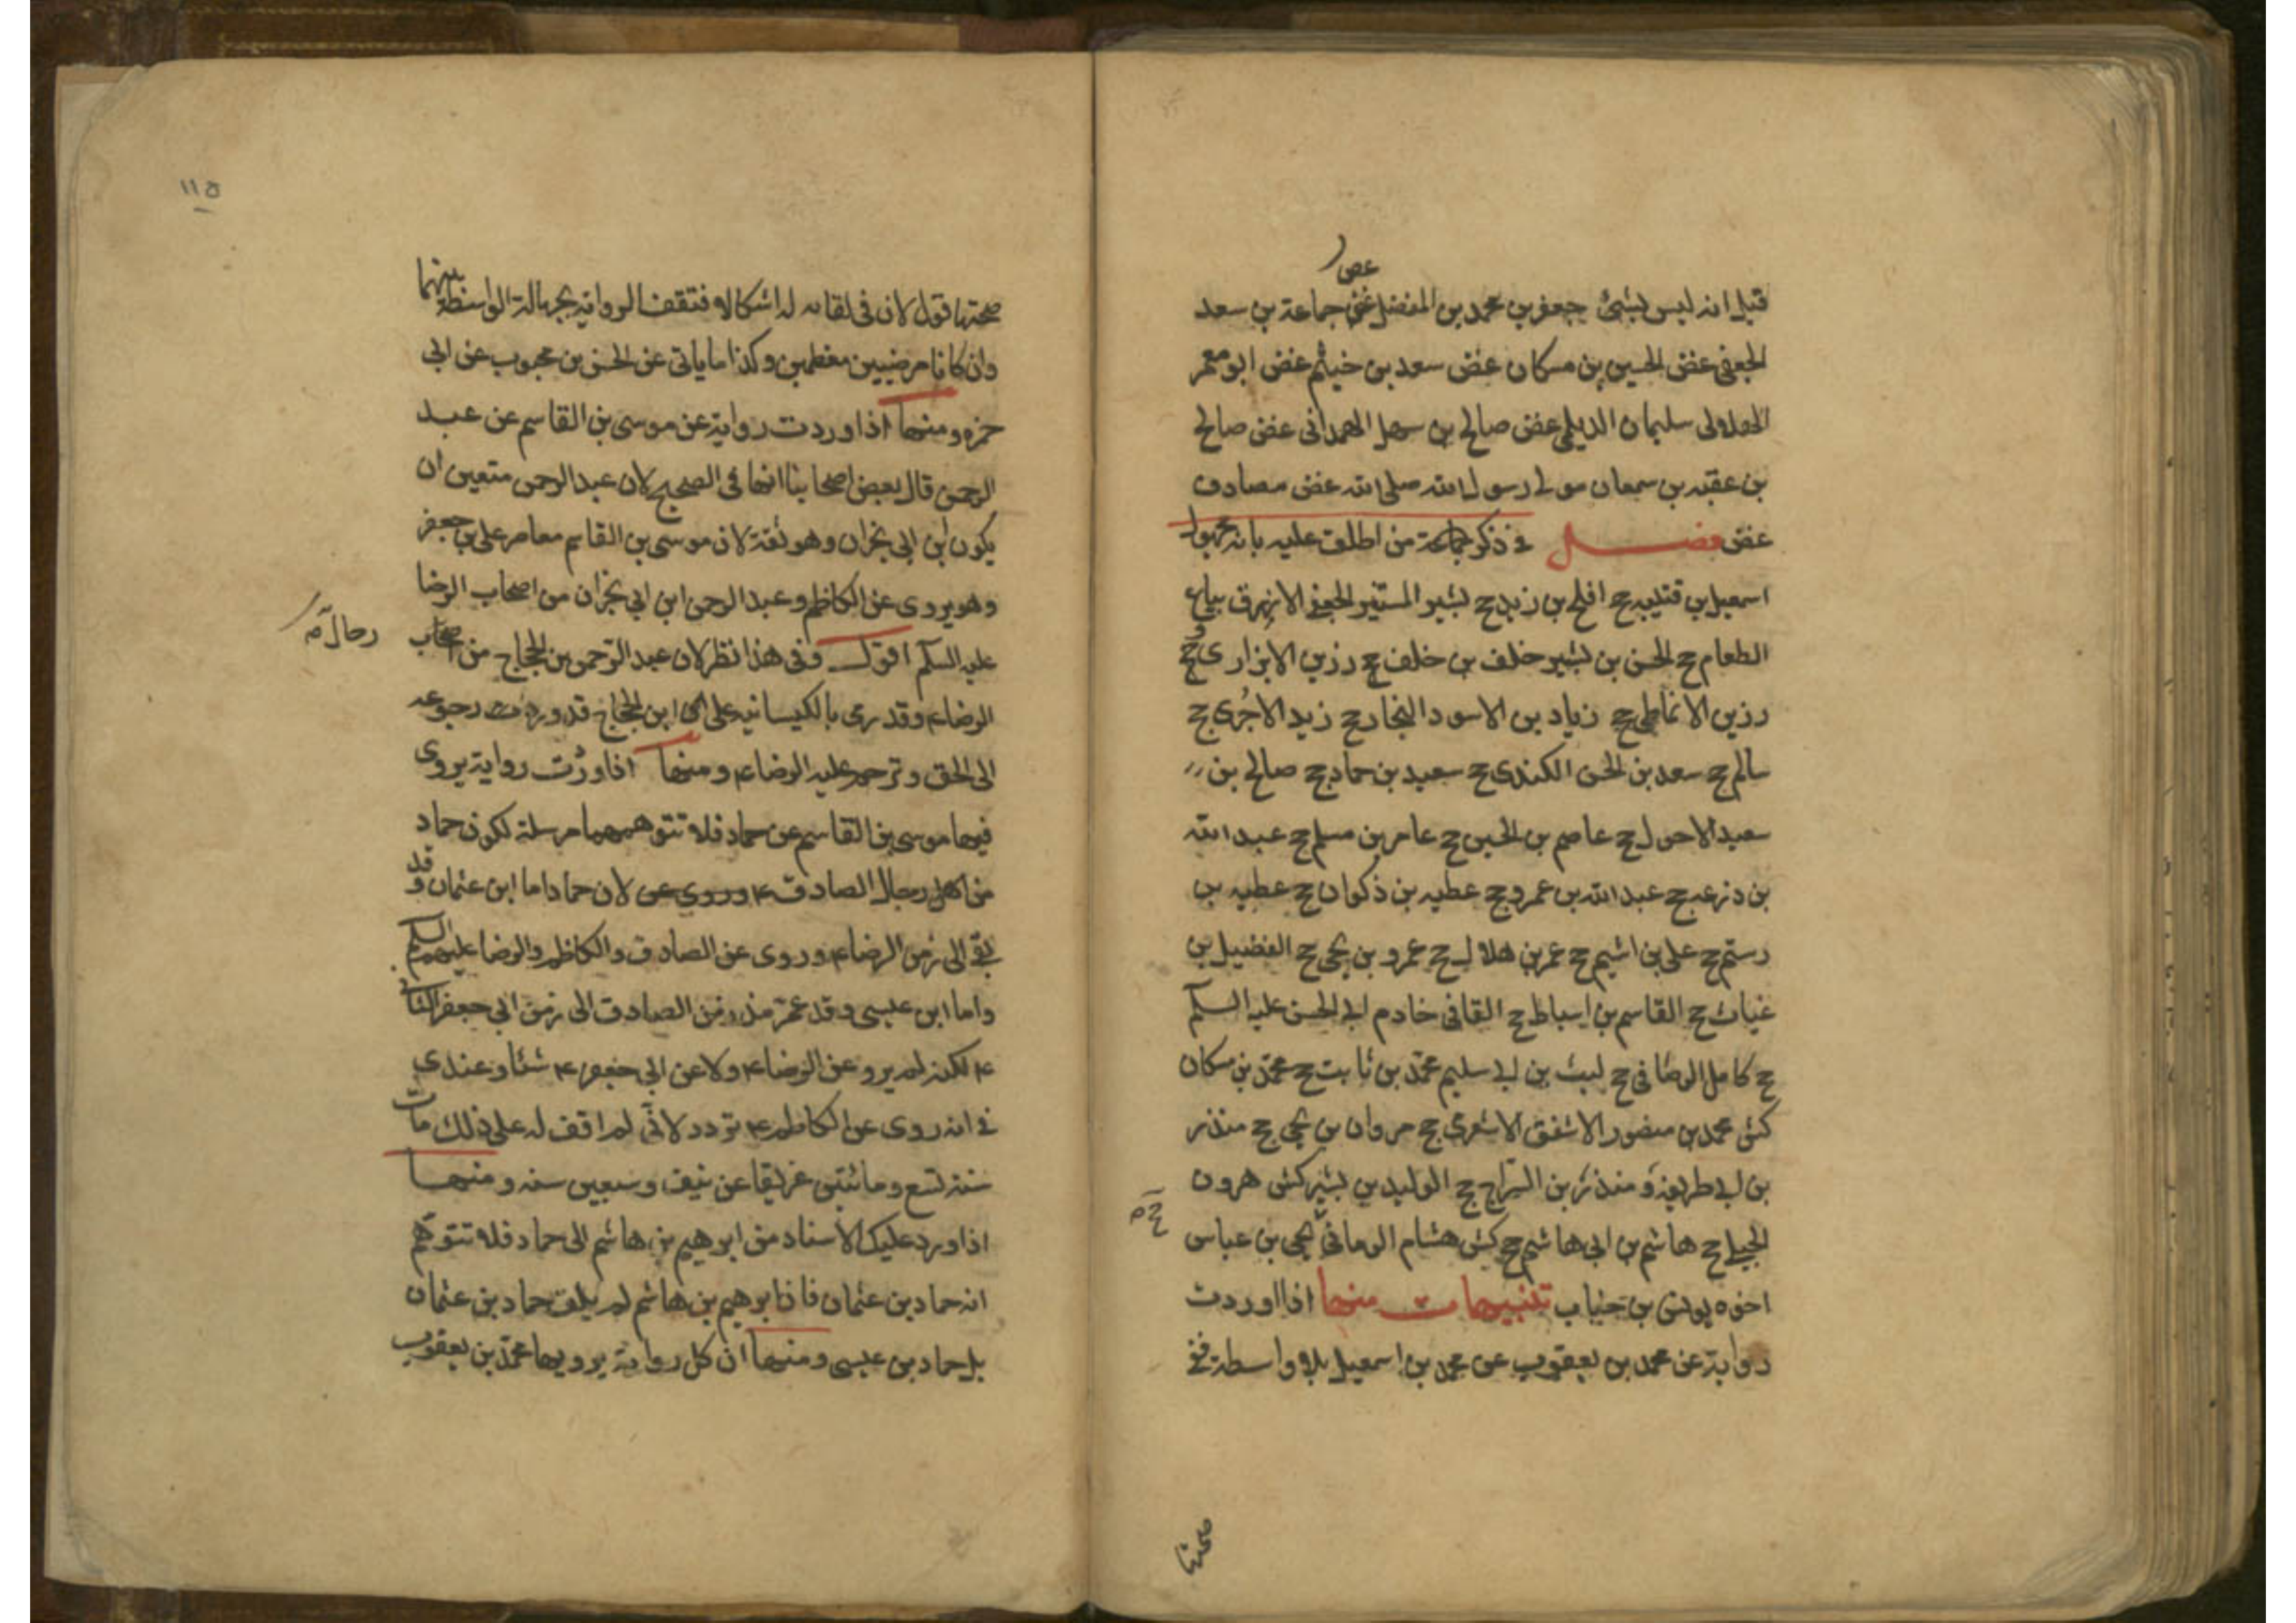 عض
قيل انه ليس بشئ جعفر بن محمد بن المفضل غض جماعة بن سعد
الجعفى غض الحسين بن مسكان غض سعد بن خيثم غض ابو معمر
الهلالى سليمان الديلمى غض صالح بن سهل الهمدانى غض صالح
بن عقبه بن سمعان مولى رسول الله صلى الله غض مصادف
غض فصل فى ذكر جماعة من اطلق عليه بانه مجهول
اسمعيل بن قتيبه ج افلح بن زيد ج بشير المستنير الجعفى الازرق بياع
الطعام ج الحسن بن بشير خلف بن خلف ج رزين الابزارى ج
رزين الانماطى ج زياد بن الاسود النجار ج زيد الاجرى ج
سالم ج سعد بن الحسن الكندى ج سعيد بن حماد ج صالح بن
سعيد الاحول ج عاصم بن الحسن ج عامر بن مسلم ج عبد الله
بن دزعه ج عبد الله بن عمرو ج عطيه بن ذكوان ج عطيه بن
رستم ج على بن اشيم ج عمر بن هلال ج عمرو بن يحيى ج الفضيل بن
غياث ج القاسم بن اسباط ج القافى خادم ابى الحسن عليه السلم
ج كامل الرصافى ج ليث بن ابى سليم محمد بن ثابت ج محمد بن مسكان
كش محمد بن منصور الاشفق الاشعرى ج مروان بن يحيى ج منذر
بن ابى طريفة و منذر بن السراج ج الوليد بن بشير كش هرون
الجبلى ج هاشم بن ابى هاشم ج كش هشام الرمانى يحيى بن عباس
اخوه يونس بن خباب تنبيهات منها اذا اوردت
رواية عن محمد بن يعقوب عن محمد بن اسمعيل بلا واسطة ففى
صحتها
١١٥
صحتها قول لان فى لقائه له اشكالا فتقف الرواية بجهالة الواسطة بينهما
وان كانا مرضيين معظمين وكذا ما ياتى عن الحسن بن محبوب عن ابى
حمزه ومنها اذا وردت رواية عن موسى بن القاسم عن عبد
الرحمن قال بعض اصحابنا انها فى الصحيح لان عبد الرحمن متعين ان
يكون ابن ابى نجران وهو ثقة لان موسى بن القاسم معاصر على بن جعفر
وهو يروى عن الكاظم وعبد الرحمن ابن ابى نجران من اصحاب الرضا
عليه السلم اقول وفى هذا نظر لان عبد الرحمن بن الحجاج من اصحاب
الرضا ء وقد رمى بالكيسانيه على ان ابن الحجاج قد وردت رجوعه
الى الحق وترحم عليه الرضا ء ومنها اذا وردت رواية يروى
فيها موسى بن القاسم عن حماد فلا تتوهمها مرسلة لكون حماد
من رجال الصادق ء وروى عن لان حمادا اما ابن عثمان فقد
بقى الى زمن الرضا ء وروى عن الصادق والكاظم والرضا عليهم السلم
واما ابن عيسى وقد عمر منذ زمن الصادق الى زمن ابى جعفر الثانى
ء لكنه لم يرو عن الرضا ء ولا عن ابى جعفر ء شئا وعندى
فى انه روى عن الكاظم ء تردد لانى لم اقف له على ذلك مات
سنة تسع ومائتين غريقا عن نيف وسبعين سنه ومنها
اذا ورد عليك الاسناد من ابرهيم بن هاشم الى حماد فلا تتوهم
انه حماد بن عثمان فان ابرهيم بن هاشم لم يلق حماد بن عثمان
بل حماد بن عيسى ومنها ان كل رواية يرويها محمد بن يعقوب